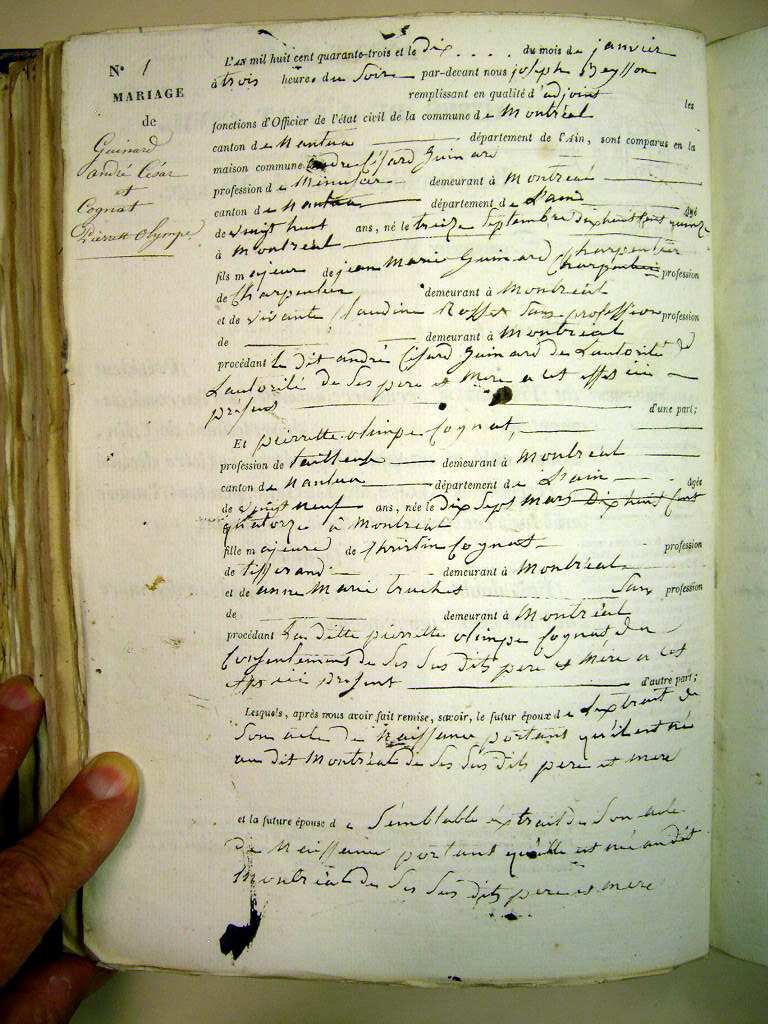 N° 1
MARIAGE
de
Guinard
andré César
et
Cognat
Pierrette Olympe
L'AN mil huit cent quarante-trois et le dix .... du mois de janvier
à trois heures du Soir par-devant nous joseph Beysson
remplissant en qualité d'adjoint les
fonctions d'Officier de l'état civil de la commune de Montréal
canton de Nantua département de l'Ain, sont comparus en la
maison commune andré Césard Guinard
profession de Menusier demeurant à Montréal
canton de Nantua département de L'ain âgé
de vingt huit ans, né le treize Septembre dix huit cent quinze
à Montréal
fils majeur de jean Marie Guinard Charpentier profession
de Charpentier demeurant à Montréal
et de vivante Claudine Rosset Sans profession profession
de demeurant à Montréal
procédant le dit andré Césard Guinard de L'autorité
L'autorité de Ses pere et Mere a cet effet ici
présens d'une part;
Et pierrette olimpe Cognat,
profession de tailleuse demeurant à Montréal
canton de Nantua département de L'ain âgée
de vingt neuf ans, née le dix Sept Mars Dix huit Cent
quatorze à Montréal
fille majeure de Christin Cognat profession
de tisserand demeurant à Montréal
et de anne Marie truchet Sans profession
de demeurant à Montréal
procédant La ditte pierrette olimpe Cognat du
Consentement de Ses Sus dits pere et mère a cet
effet ici présent d'autre part;
Lesquels, après nous avoir fait remise, savoir, le futur époux de L'extrait de
Son acte de Naissance portant qu'il est né
au dit Montréal de Ses Sus dits pere et mere
et la future épouse de Semblable éxtrait de Son acte
de Naissance portant qu'elle est né au dit
Montréal de Ses Sus dits pere et mere